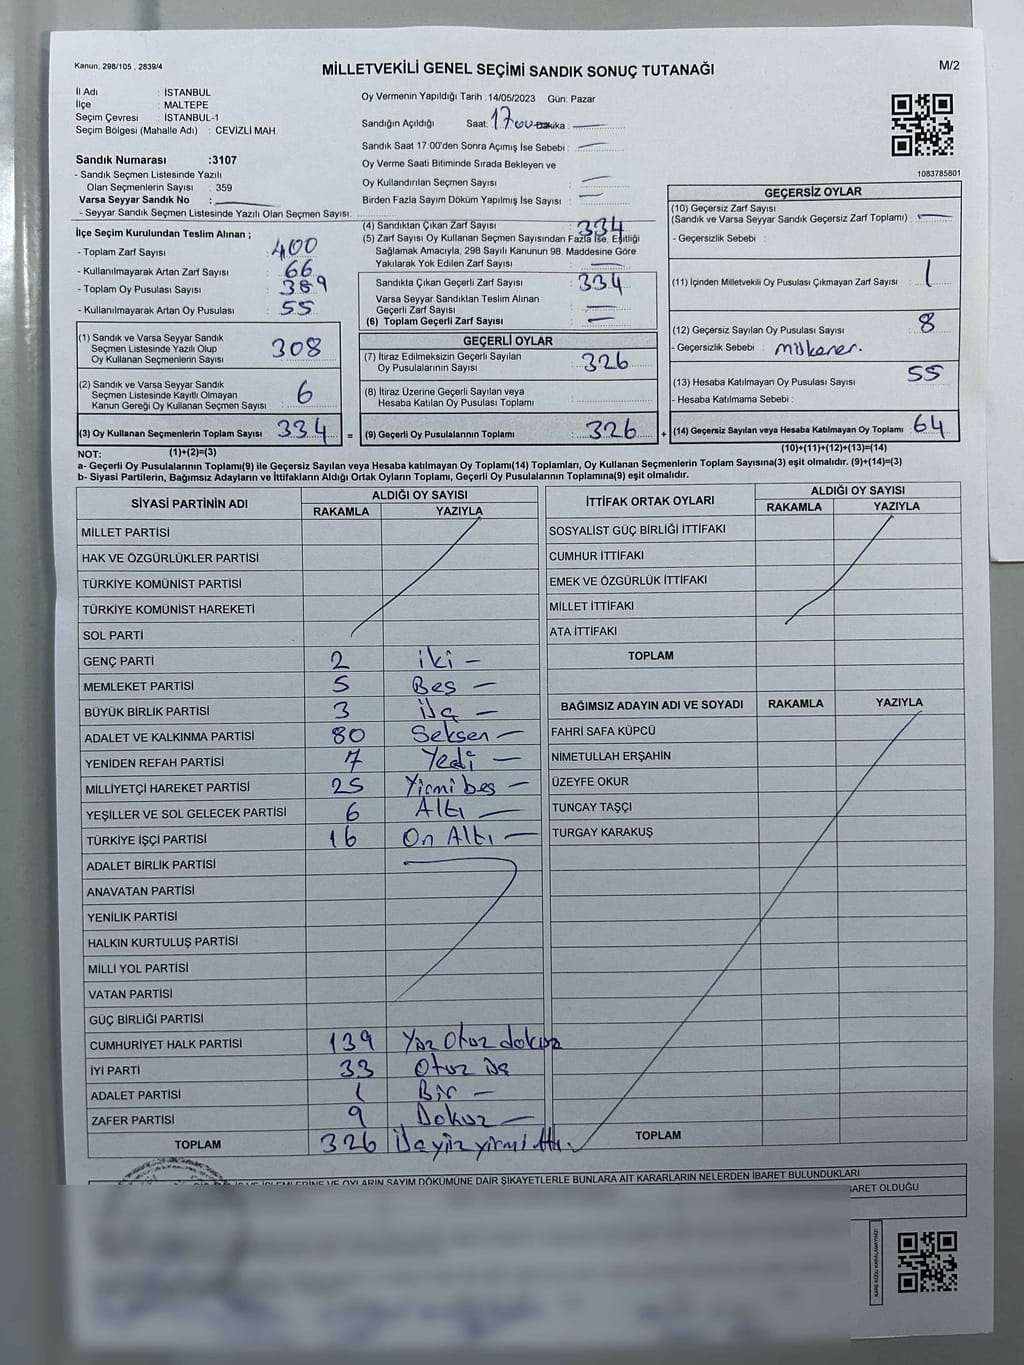 Kanun; 298/105 . 2839/4
MİLLETVEKİLİ GENEL SEÇİMİ SANDIK SONUÇ TUTANAĞI
M/2
İl Adı : İSTANBUL
İlçe : MALTEPE
Seçim Çevresi : İSTANBUL-1
Seçim Bölgesi (Mahalle Adı) : CEVİZLİ MAH.
Sandık Numarası :3107
- Sandık Seçmen Listesinde Yazılı
Olan Seçmenlerin Sayısı : 359
Varsa Seyyar Sandık No :
- Seyyar Sandık Seçmen Listesinde Yazılı Olan Seçmen Sayısı:
Oy Vermenin Yapıldığı Tarih :14/05/2023 Gün: Pazar
Sandığın Açıldığı Saat: 17 00 Dakika :
Sandık Saat 17:00'den Sonra Açımış İse Sebebi :
Oy Verme Saati Bitiminde Sırada Bekleyen ve
Oy Kullandırılan Seçmen Sayısı :
Birden Fazla Sayım Döküm Yapılmış İse Sayısı :
1083785801
İlçe Seçim Kurulundan Teslim Alınan ;
- Toplam Zarf Sayısı : 400
- Kullanılmayarak Artan Zarf Sayısı : 66
- Toplam Oy Pusulası Sayısı : 389
- Kullanılmayarak Artan Oy Pusulası : 55
(1) Sandık ve Varsa Seyyar Sandık
Seçmen Listesinde Yazılı Olup
Oy Kullanan Seçmenlerin Sayısı : 308
(2) Sandık ve Varsa Seyyar Sandık
Seçmen Listesinde Kayıtlı Olmayan
Kanun Gereği Oy Kullanan Seçmen Sayısı : 6
(3) Oy Kullanan Seçmenlerin Toplam Sayısı : 334 =
(1)+(2)=(3)
(4) Sandıktan Çıkan Zarf Sayısı : 334
(5) Zarf Sayısı Oy Kullanan Seçmen Sayısından Fazla İse, Eşitliği
Sağlamak Amacıyla, 298 Sayılı Kanunun 98. Maddesine Göre
Yakılarak Yok Edilen Zarf Sayısı :
Sandıkta Çıkan Geçerli Zarf Sayısı : 334
Varsa Seyyar Sandıktan Teslim Alınan
Geçerli Zarf Sayısı :
(6) Toplam Geçerli Zarf Sayısı :
GEÇERLİ OYLAR
(7) İtiraz Edilmeksizin Geçerli Sayılan
Oy Pusulalarının Sayısı : 326
(8) İtiraz Üzerine Geçerli Sayılan veya
Hesaba Katılan Oy Pusulası Toplamı :
(9) Geçerli Oy Pusulalarının Toplamı : 326 +
GEÇERSİZ OYLAR
(10) Geçersiz Zarf Sayısı
(Sandık ve Varsa Seyyar Sandık Geçersiz Zarf Toplamı) :
- Geçersizlik Sebebi :
(11) İçinden Milletvekili Oy Pusulası Çıkmayan Zarf Sayısı : 1
(12) Geçersiz Sayılan Oy Pusulası Sayısı : 8
- Geçersizlik Sebebi :
(13) Hesaba Katılmayan Oy Pusulası Sayısı : 55
- Hesaba Katılmama Sebebi :
(14) Geçersiz Sayılan veya Hesaba Katılmayan Oy Toplamı : 64
(10)+(11)+(12)+(13)=(14)
NOT:
a- Geçerli Oy Pusulalarının Toplamı(9) ile Geçersiz Sayılan veya Hesaba katılmayan Oy Toplamı(14) Toplamları, Oy Kullanan Seçmenlerin Toplam Sayısına(3) eşit olmalıdır. (9)+(14)=(3)
b- Siyasi Partilerin, Bağımsız Adayların ve İttifakların Aldığı Ortak Oyların Toplamı, Geçerli Oy Pusulalarının Toplamına(9) eşit olmalıdır.
SİYASİ PARTİNİN ADI ALDIĞI OY SAYISI
RAKAMLA YAZIYLA
MİLLET PARTİSİ
HAK VE ÖZGÜRLÜKLER PARTİSİ
TÜRKİYE KOMÜNİST PARTİSİ
TÜRKİYE KOMÜNİST HAREKETİ
SOL PARTİ
GENÇ PARTİ 2 iki –
MEMLEKET PARTİSİ 5 Beş –
BÜYÜK BİRLİK PARTİSİ 3 üç –
ADALET VE KALKINMA PARTİSİ 80 Seksen –
YENİDEN REFAH PARTİSİ 7 Yedi –
MİLLİYETÇİ HAREKET PARTİSİ 25 Yirmi beş –
YEŞİLLER VE SOL GELECEK PARTİSİ 6 Altı –
TÜRKİYE İŞÇİ PARTİSİ 16 On Altı –
ADALET BİRLİK PARTİSİ
ANAVATAN PARTİSİ
YENİLİK PARTİSİ
HALKIN KURTULUŞ PARTİSİ
MİLLİ YOL PARTİSİ
VATAN PARTİSİ
GÜÇ BİRLİĞİ PARTİSİ
CUMHURİYET HALK PARTİSİ 139 Yüz Otuz dokuz
İYİ PARTİ 33 Otuz üç
ADALET PARTİSİ 1 Bir –
ZAFER PARTİSİ 9 Dokuz –
TOPLAM 326 üçyüz yirmi altı.
İTTİFAK ORTAK OYLARI ALDIĞI OY SAYISI
RAKAMLA YAZIYLA
SOSYALİST GÜÇ BİRLİĞİ İTTİFAKI
CUMHUR İTTİFAKI
EMEK VE ÖZGÜRLÜK İTTİFAKI
MİLLET İTTİFAKI
ATA İTTİFAKI
TOPLAM
BAĞIMSIZ ADAYIN ADI VE SOYADI RAKAMLA YAZIYLA
FAHRİ SAFA KÜPCÜ
NİMETULLAH ERŞAHİN
ÜZEYFE OKUR
TUNCAY TAŞÇI
TURGAY KARAKUŞ
TOPLAM
İŞ VE İŞLEMLERİNE VE OYLARIN SAYIM DÖKÜMÜNE DAİR ŞİKAYETLERLE BUNLARA AİT KARARLARIN NELERDEN İBARET BULUNDUKLARI
İBARET OLDUĞU
KARE KODU KARALAMAYINIZ!